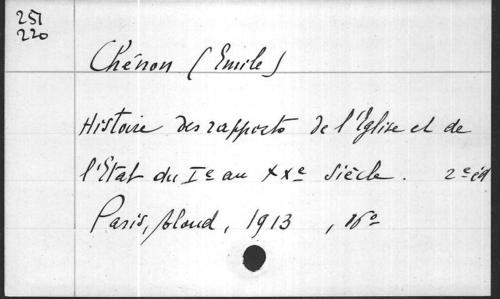 251
220
Chénon (Emile)
Histoire des rapports de l'Eglise et de
l'Etat du Ie au XXe Siècle. 2e éd
Paris, bloud, 1913, 16°